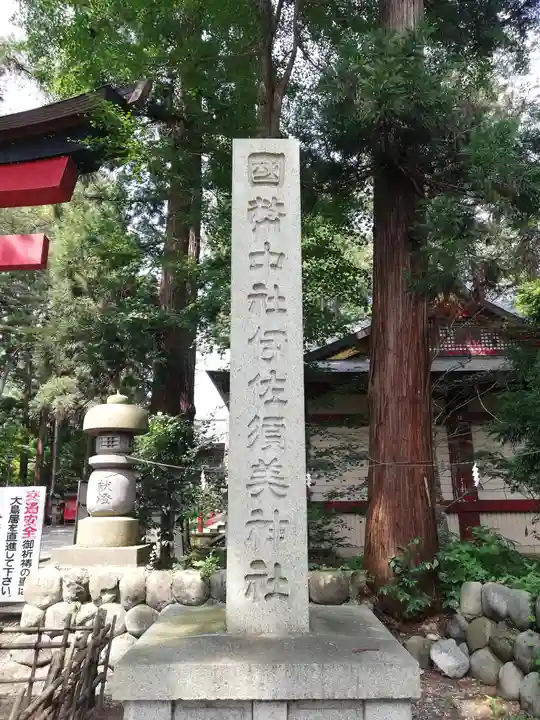 國幣中社伊佐須美神社
献燈
交通安全御祈祷の車は
大鳥居を直進して下さい。